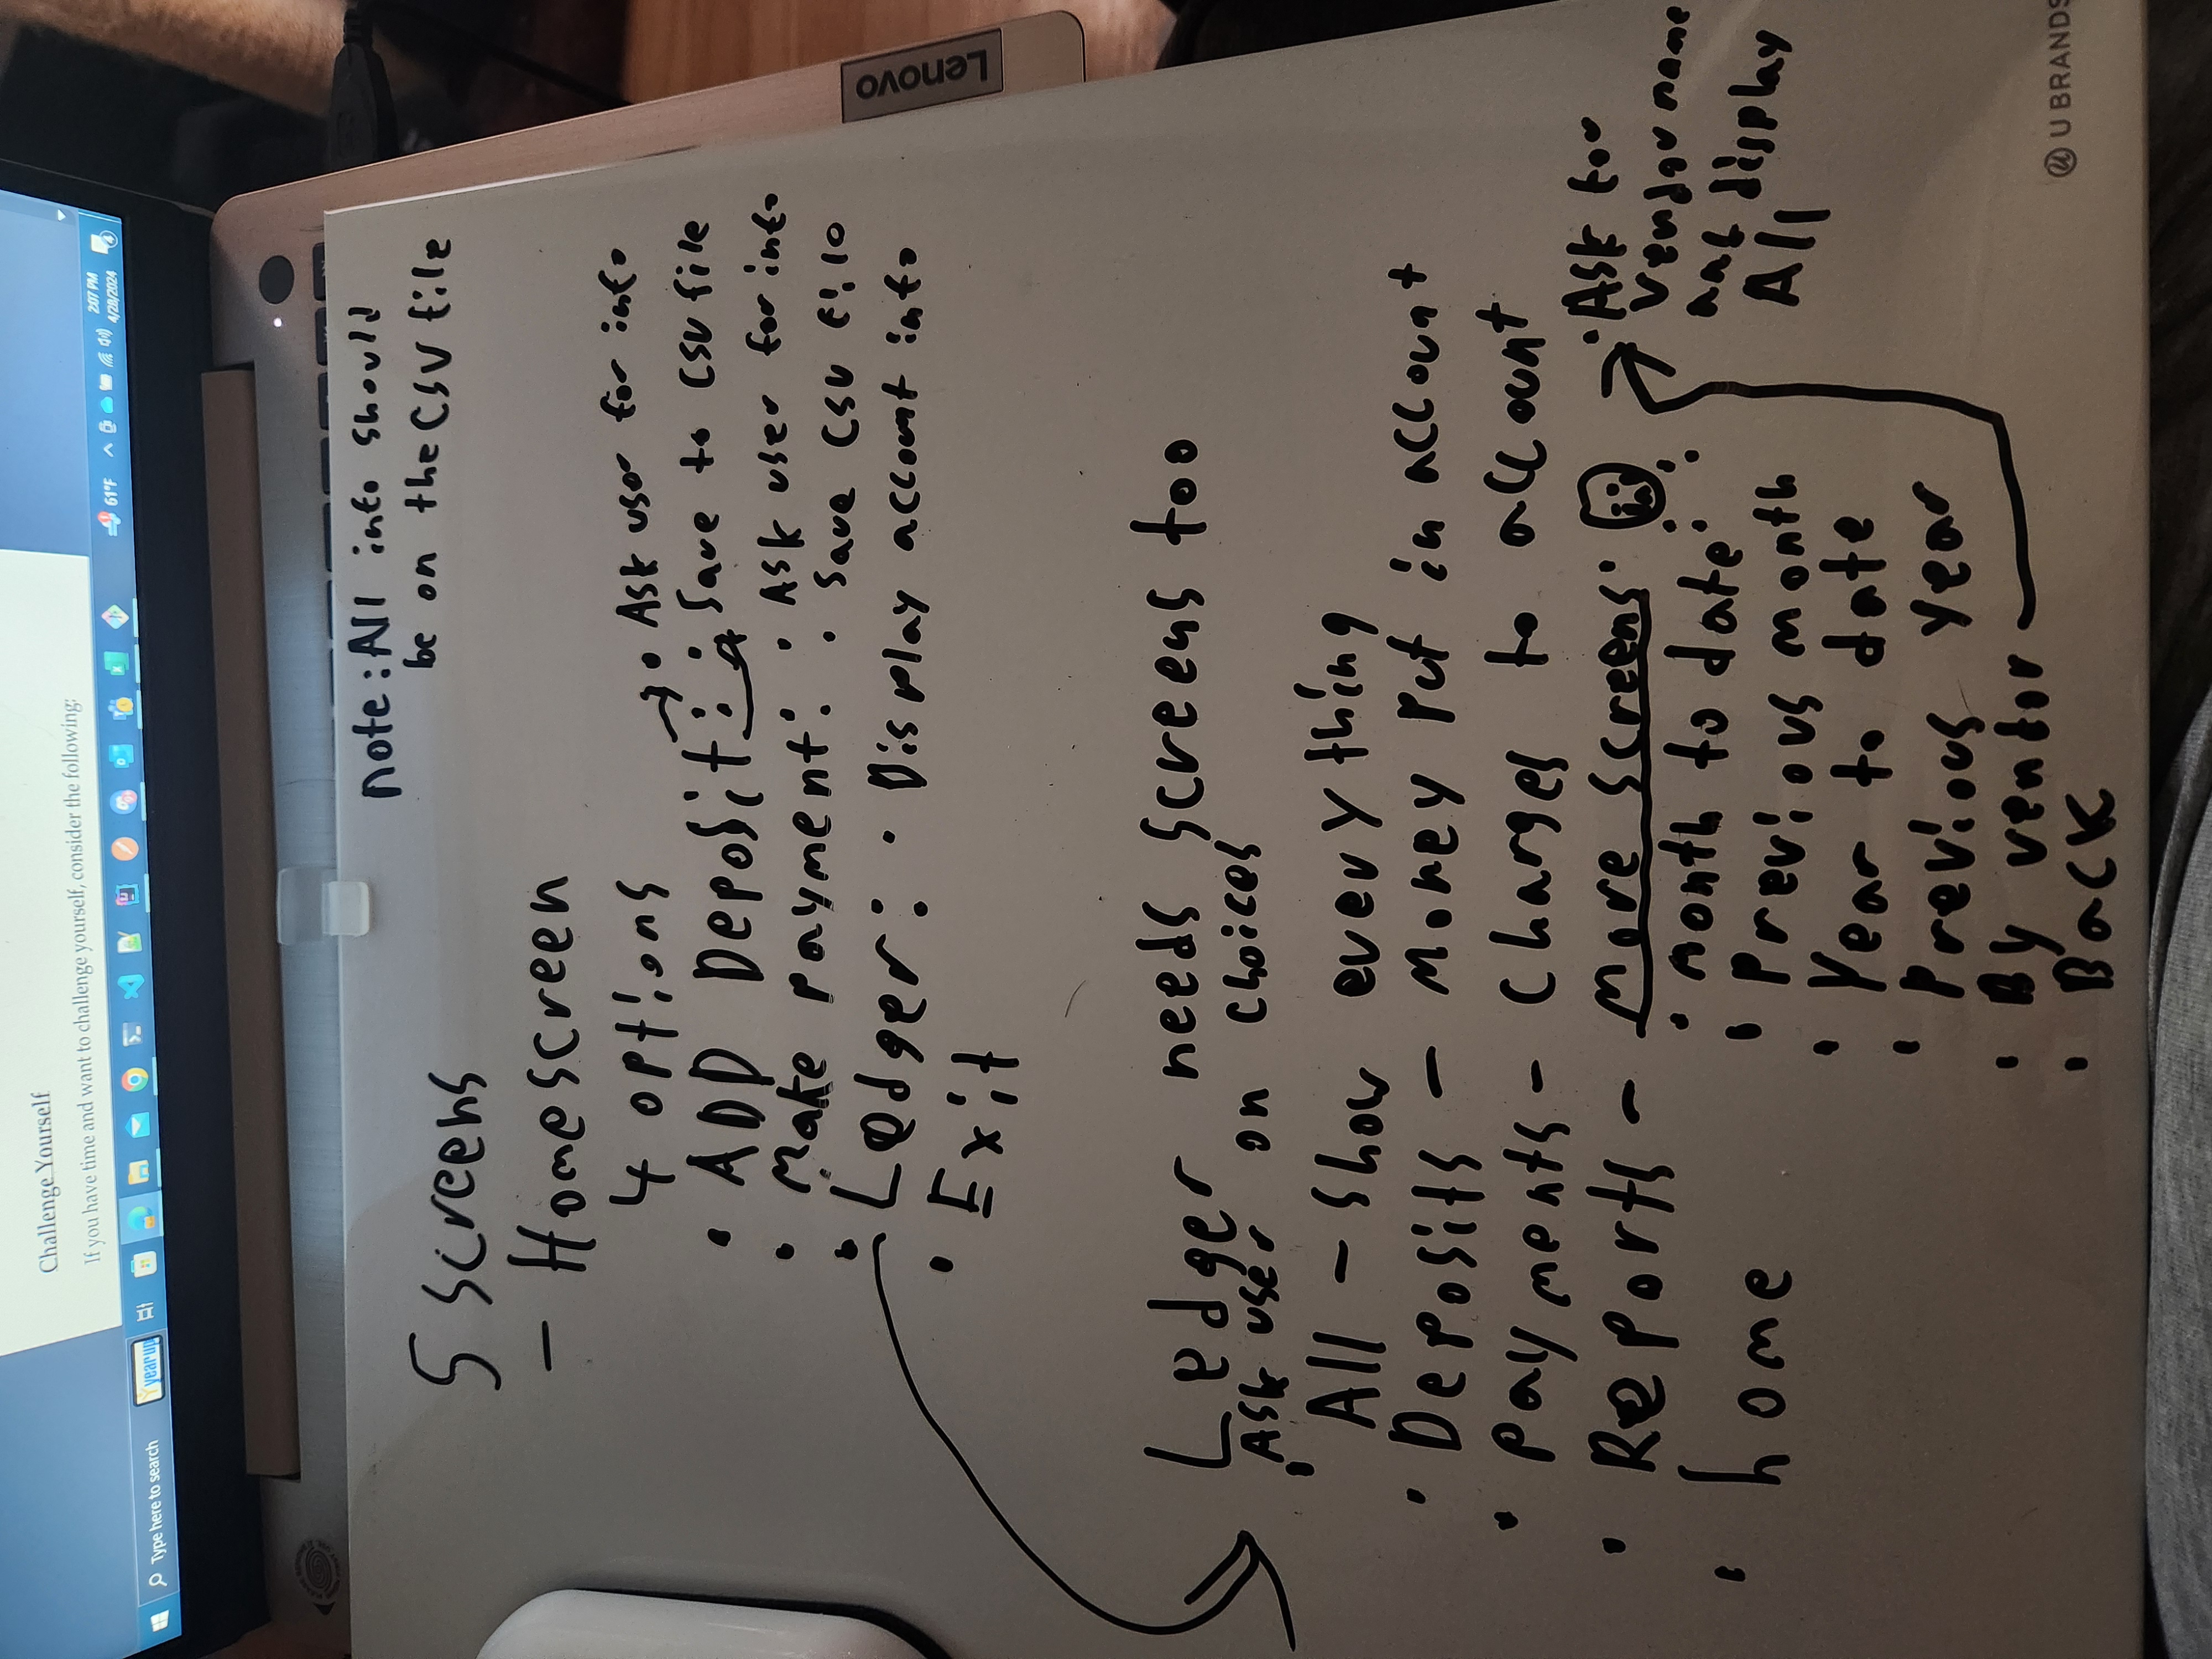 Challenge Yourself
If you have time and want to challenge yourself, consider the following:
Type here to search
yearup
61°F
2:07 PM
4/28/2024
4
note: All info should
be on the CSV file
5 screens
- Homescreen
4 options
• ADD Deposit: • Ask user for info
• Save to CSV file
• Make payment: • Ask user for info
• Save CSV file
• Ledger: • Display account info
• Exit
Lenovo
Ledger needs screens too
Ask user on choices
• All - Show everything
• Deposits - money put in account
• payments - Charges to account
• Reports - more screens
• month to date
• Previous month
• Year to date
• Previous year
• By vendor
• Back
• home
• Ask for
vendor name
and display
All
U BRANDS